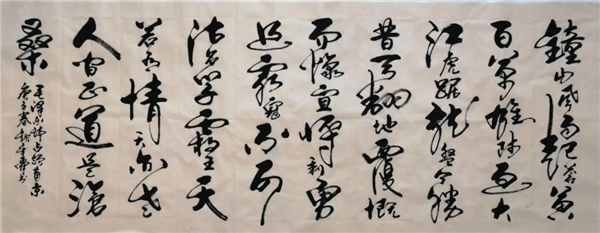 鐘山風雨起蒼黃
百萬雄師過大
江虎踞龍盤今勝
昔天翻地覆慨
而慷宜將剩勇
追窮寇不可
沽名學霸王天
若有情天亦老
人間正道是滄
桑
毛澤東詩占領南京
庚子春書